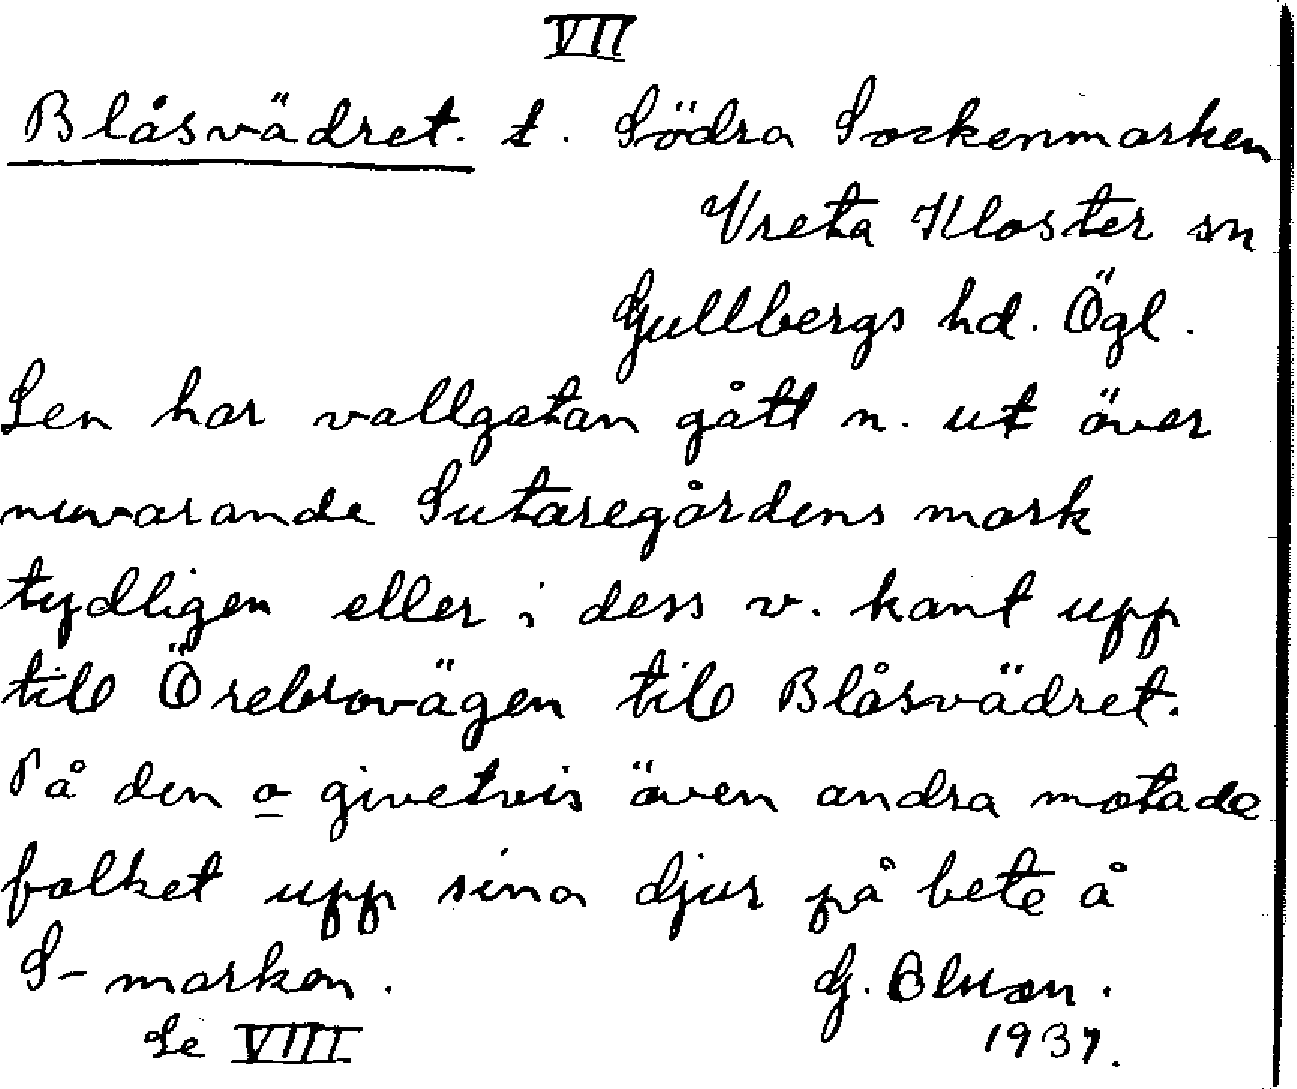 VII
Blåsvädret. t. Södra Sockenmarken
Vreta Kloster sn
Gullbergs hd. Ögl.
Sen har vallgatan gått n. ut över
nuvarande Sutaregårdens mark
tydligen eller i dess v. kant upp
till Örebrovägen till Blåsvädret.
På den o givetvis även andra motade
folket upp sina djur på bete å
S-marken.
G.
Se VIII
1937.